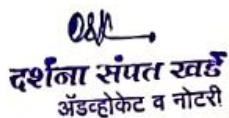 दर्शना संपत खर्डे
ॲडव्होकेट व नोटरी